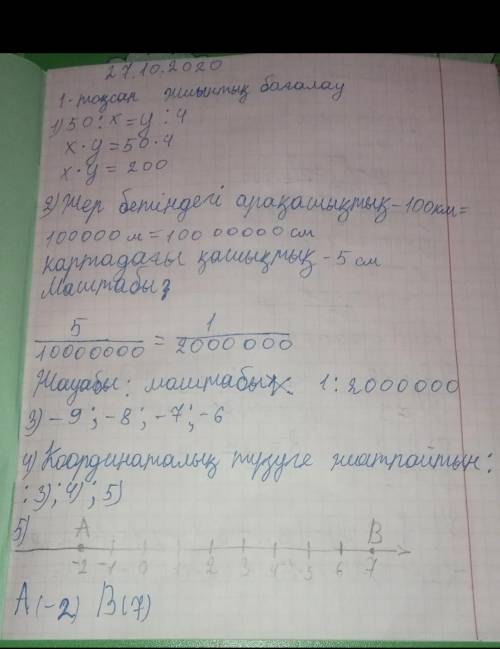 27.10.2020
1-тоқсан жиынтық бағалау
1) 50 : x = y : 4
x · y = 50 · 4
x · y = 200
2) Жер бетіндегі арақашықтық - 100км =
100000 м = 10000000 см
картадағы қашықтық - 5 см
Маштабы ?
5/10000000 = 1/2000000
Жауабы: маштабы 1 : 2000000
3) -9; -8; -7; -6
4) Координаталық түзуге жатпайтын:
: 3); 4); 5)
5) A B
-2 -1 0 1 2 3 4 5 6 7
A(-2) B(7)